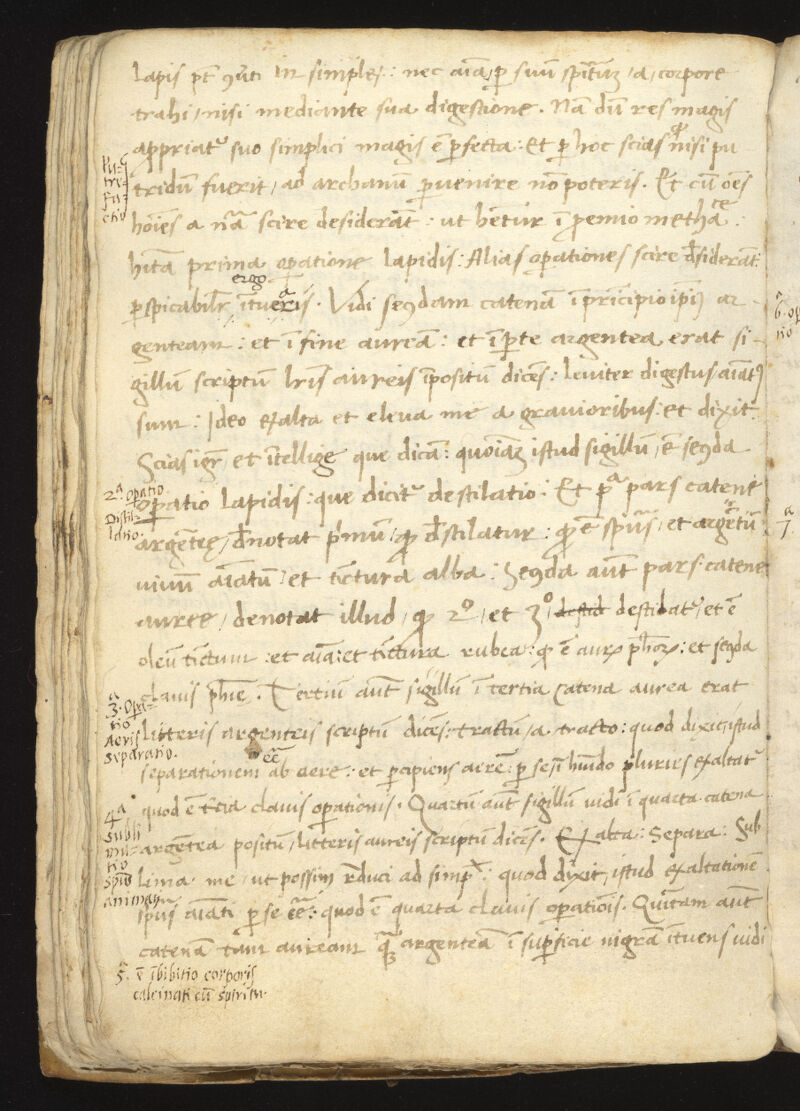 lapis pt̄ 9ūti in simplex: nec aīa, p suū spītum, a, corpore
trahi, nisi mediante sua digestione. Nā dū res magis
appriatʳ suo simplici magis ē pfecta: Et p hoc scias qd̄ nisi pu
tridū fuerit, ad archanū puenire nō poteris. Et cū oēs
hoīes a nr̄ā scire desiderāt: ut hētur ī p̄emio methaᶜᵉ:
hītā prima opatione lapidis: Alias opationes scire dsiderāt:
ergo
pspicabilr̄ ītueris. Vidi se9dam catenā ī principio ipī9 ar
genteam: et ī fine aureā: et ī pte argentea erat si-
gillū scriptū lrīs aureis īpositū dicēs: leviter digestus aīat9
sum: Ideo exalta et eleva me a gravioribus: et dixit:
Scias igr̄ et ītellige que dicā: quoīaȝ istud sigillū, ē se9da
opatio lapidis: que dicitʳ destilatio: Et pᵃ pars catene
argēteę, dnotat p̄mū, qd̄ dstilatur: qd̄ ē spūs, et argētū
vivū aīatū, et tīctura alba: Se9da aūt pars catene
auree, denotat illud, qd̄ 2º, et 3º, destid destilatʳ, et ē
oleū tīctum: et aīa: et tīctura rubea: qd̄ ē aurȝ ph̄orȝ: et se9da
clavis ph̄ie. Tertiū aūt sigillū ī tertia catena aurea erat
litteris argenteis scriptū dicēs: tractū, a, tracto: quod dixit, istud
eē
separationem ab aere: et pcipiens aerē: p se, ī humido pluries exaltatʳ
quod ē tertia clavis opationis. Quartū aūt sigillū vidi ī quarta catena
argentea positū, litteris aureis scriptū dicēs. Exalta: Separa: Sub
lima me, ut possim rduci ad simpˣ: quod dixit, istud exaltationē
spūs aīati p se eē: quod ē quarta clavis opatiōis. Quītam aūt
catenā tam auream quā argenteā ī supficie nigrā ītuens vidi
Pu=
tre
fa=
ctio
2ᵃ opatio
Distil
latio.
3.ᵃ Opa=
tio
Aeris
separatio.
4ᵃ
Subli
ma=
tio
spūs
animati
5.ᵃ ē ībibitio corporis
calcinati cū spiritu.
6.ᵃ op
tio
7.ᵃ